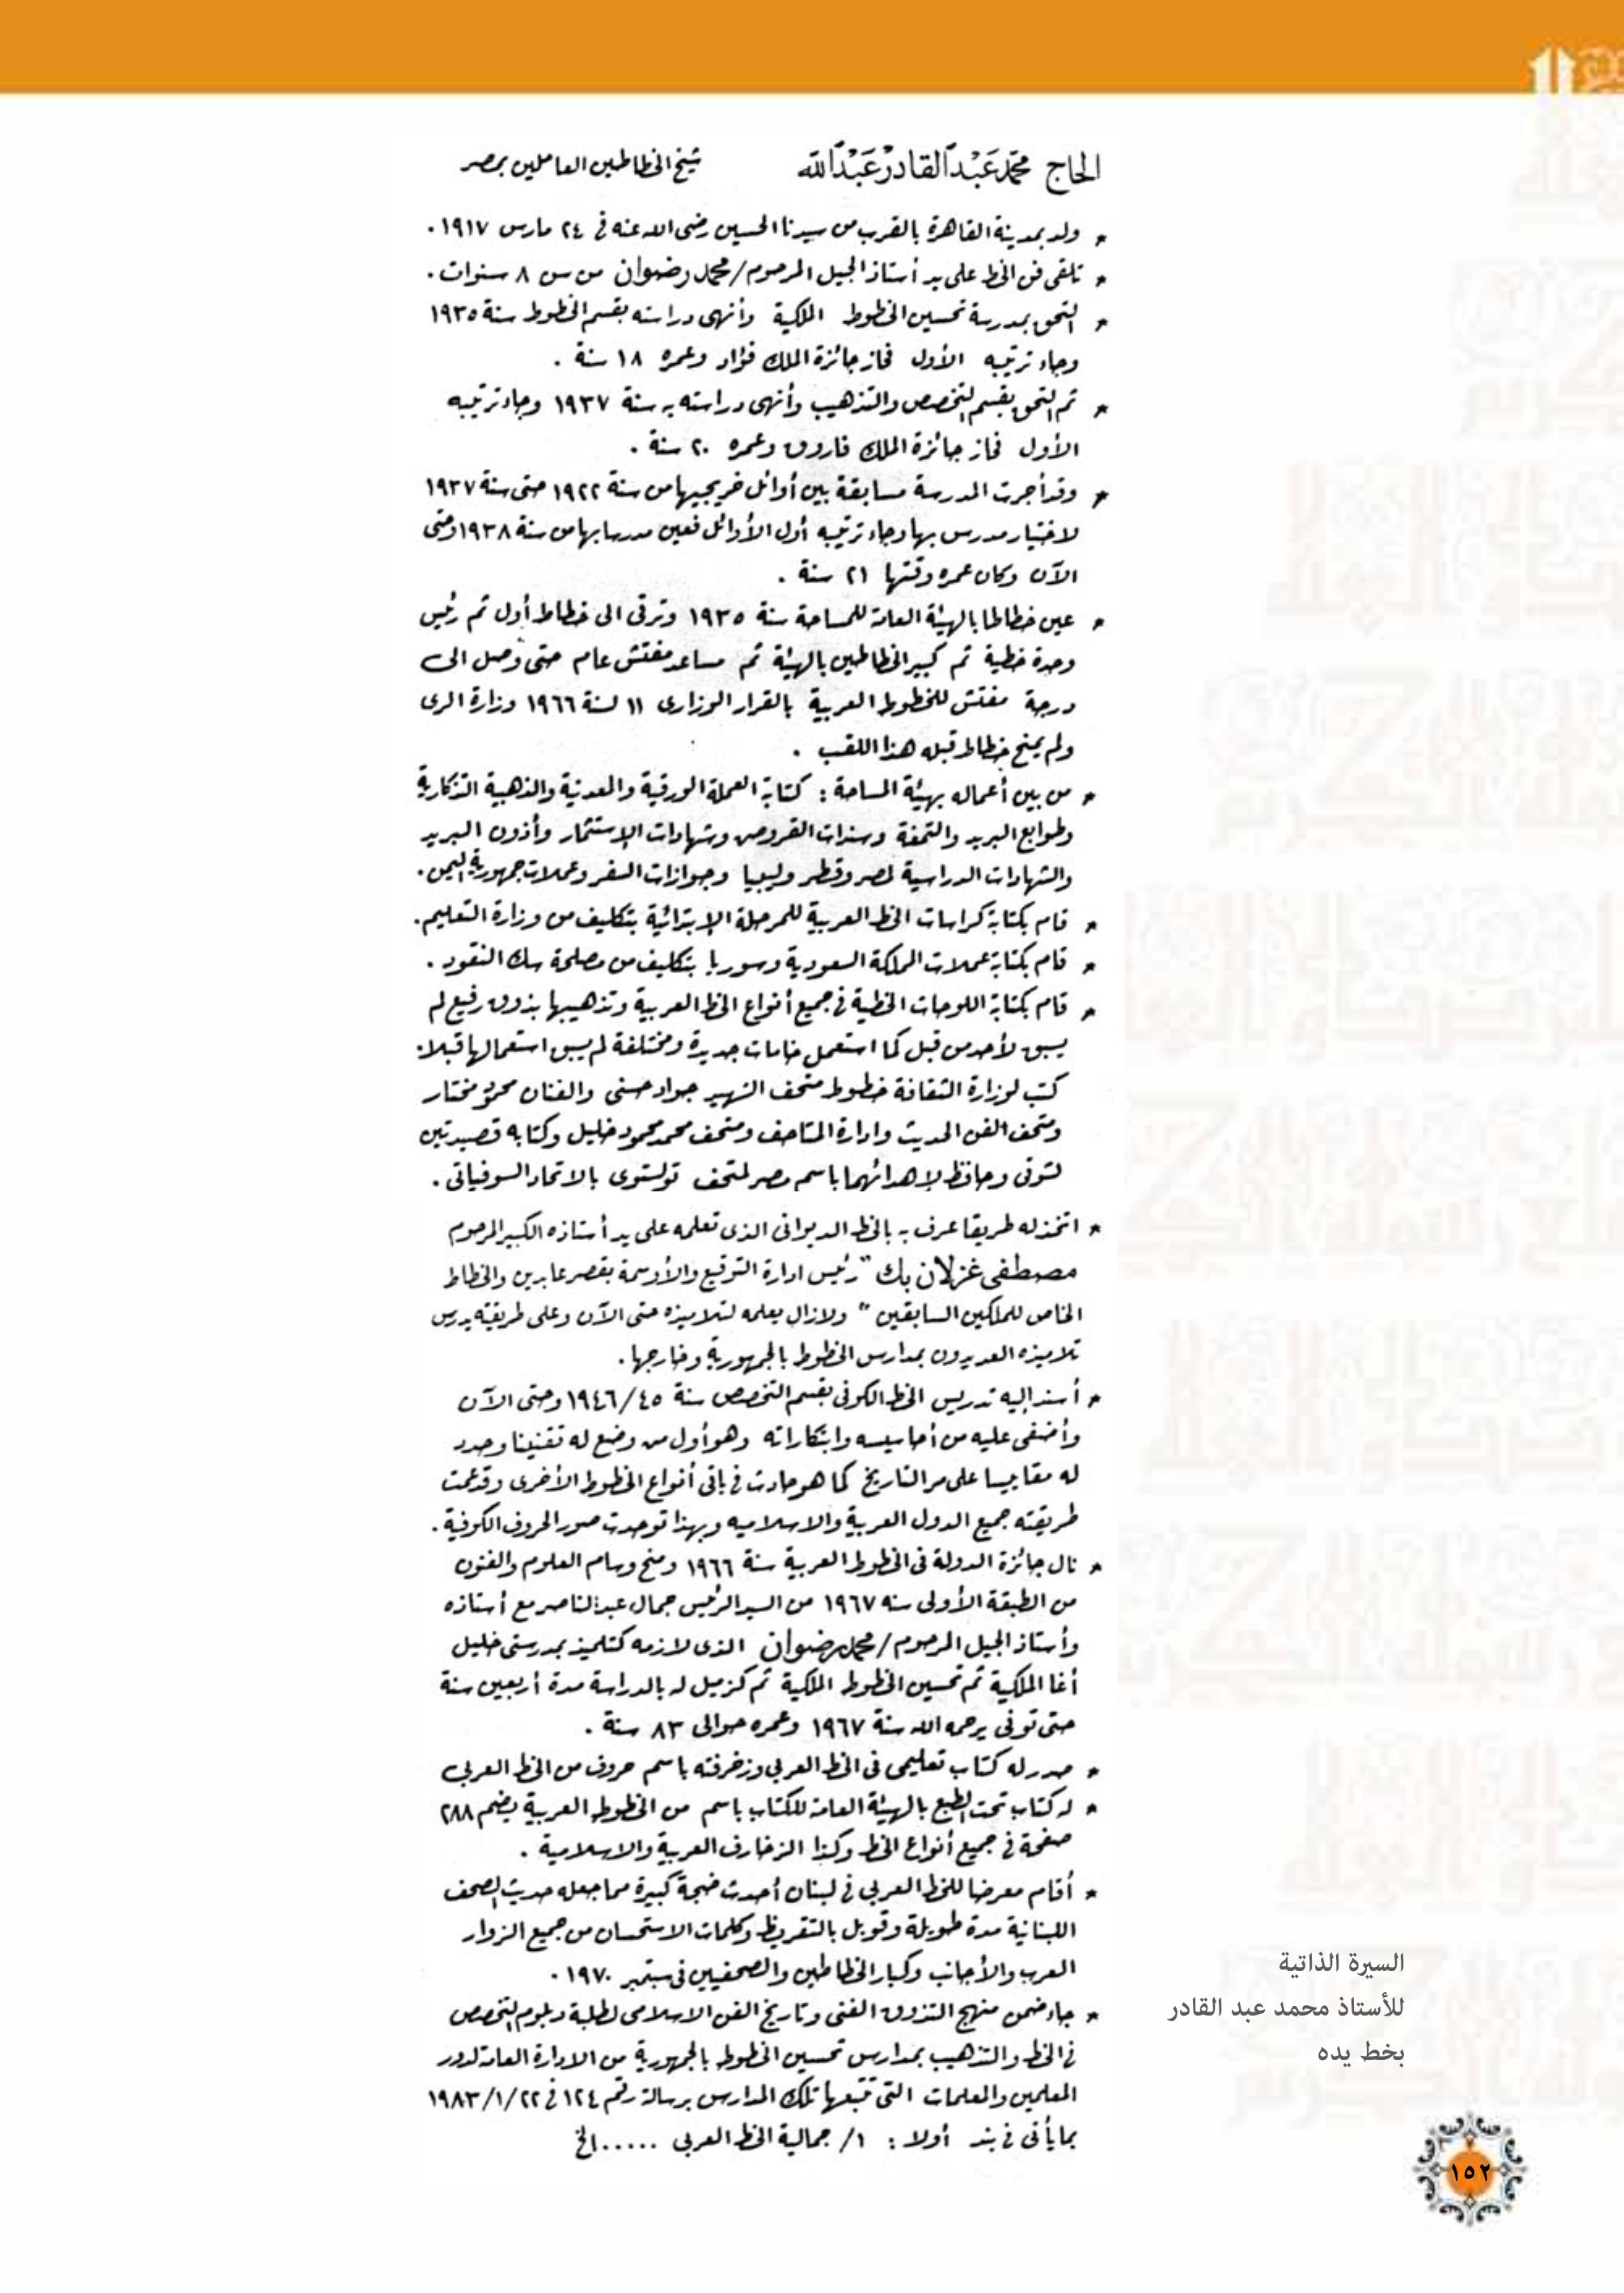 الحاج محمد عبد القادر عبد الله شيخ الخطاطين العاملين بمصر
* ولد بمدينة القاهرة بالقرب من سيدنا الحسين رضى الله عنه فى ٢٤ مارس ١٩١٧ .
* تلقى فن الخط على يد أستاذ الجيل المرحوم / محمد رضوان من سن ٨ سنوات .
* التحق بمدرسة تحسين الخطوط الملكية وأنهى دراسته بقسم الخطوط سنة ١٩٣٥
وجاء ترتيبه الأول فحاز جائزة الملك فؤاد وعمره ١٨ سنة .
* ثم التحق بقسم التخصص والتذهيب وأنهى دراسته به سنة ١٩٣٧ وجاء ترتيبه
الأول فحاز جائزة الملك فاروق وعمره ٢٠ سنة .
* وقد أجرت المدرسة مسابقة بين أوائل خريجيها من سنة ١٩٢٢ حتى سنة ١٩٣٧
لاختيار مدرس بها وجاء ترتيبه أول الأوائل فعين مدرسا بها من سنة ١٩٣٨ وحتى
الآن وكان عمره وقتها ٢١ سنة .
* عين خطاطا بالهيئة العامة للمساحة سنة ١٩٣٥ وترقى الى خطاط أول ثم رئيس
وحدة خطية ثم كبير الخطاطين بالهيئة ثم مساعد مفتش عام حتى وصل الى
درجة مفتش للخطوط العربية بالقرار الوزارى ١١ لسنة ١٩٦٦ وزارة الرى
ولم يمنح خطاط قبله هذا اللقب .
* من بين أعماله بهيئة المساحة : كتابة العملة الورقية والمعدنية والذهبية التذكارية
وطوابع البريد والتمغة وسندات القروض وشهادات الإستثمار وأذون البريد
والشهادات الدراسية لمصر وقطر وليبيا وجوازات السفر وعملات جمهورية اليمن .
* قام بكتابة كراسات الخط العربية للمرحلة الإبتدائية بتكليف من وزارة التعليم .
* قام بكتابة عملات المملكة السعودية وسوريا بتكليف من مصلحة سك النقود .
* قام بكتابة اللوحات الخطية فى جميع أنواع الخط العربية وتذهيبها بذوق رفيع لم
يسبق لأحد من قبل كما استعمل خامات جديدة ومختلفة لم يسبق استعمالها قبلا .
كتب لوزارة الثقافة خطوط متحف الشهيد جواد حسنى والفنان محمود مختار
ومتحف الفن الحديث وادارة المتاحف ومتحف محمد محمود خليل وكتابه قصيدتين
لشوقى وحافظ لإهدائهما باسم مصر لمتحف تولستوى بالاتحاد السوفياتى .
* اتخذ له طريقا عرف به بالخط الديوانى الذى تعلمه على يد أستاذه الكبير المرحوم
مصطفى غزلان بك " رئيس ادارة التوقيع والأوسمة بقصر عابدين والخطاط
الخاص للملكين السابقين " ولازال يعلمه لتلاميذه حتى الآن وعلى طريقته يدرس
تلاميذه العديدون بمدارس الخطوط بالجمهورية وخارجها .
* أسند إليه تدريس الخط الكوفى بقسم التخصص سنة ٤٥/١٩٤٦ وحتى الآن
وأضفى عليه من أحاسيسه وابتكاراته وهو أول من وضع له تقنينا وحدد
له مقاييسا على مر التاريخ كما هو حادث فى باقى أنواع الخطوط الأخرى وقد عمت
طريقته جميع الدول العربية والاسلاميه وبهذا توحدت صور الحروف الكوفية .
* نال جائزة الدولة فى الخطوط العربية سنة ١٩٦٦ ومنح وسام العلوم والفنون
من الطبقة الأولى سنه ١٩٦٧ من السيد الرئيس جمال عبد الناصر مع أستاذه
وأستاذ الجيل المرحوم / محمد رضوان الذى لازمه كتلميذ بمدرستى خليل
أغا الملكية ثم تحسين الخطوط الملكية ثم كزميل له بالدراسة مدة أربعين سنة
حتى توفى يرحمه الله سنة ١٩٦٧ وعمره حوالى ٨٣ سنة .
* صدر له كتاب تعليمى فى الخط العربي وزخرفته باسم حروف من الخط العربى
* له كتاب تحت الطبع بالهيئة العامة للكتاب باسم من الخطوط العربية يضم ٢٨٨
صفحة فى جميع أنواع الخط وكذا الزخارف العربية والاسلامية .
* أقام معرضا للخط العربى فى لبنان أحدث ضجة كبيرة مما جعله حديث الصحف
اللبنانية مدة طويلة وقوبل بالتقريظ وكلمات الاستحسان من جميع الزوار
العرب والأجانب وكبار الخطاطين والصحفيين فى سبتمبر ١٩٧٠ .
* جاء ضمن منهج التذوق الفنى وتاريخ الفن الاسلامى لطلبة دبلوم التخصص
فى الخط والتذهيب بمدارس تحسين الخطوط بالجمهورية من الادارة العامة لدور
المعلمين والمعلمات التى تتبعها تلك المدارس برسالة رقم ١٢٤ فى ١٩٨٣/١/٢٢
بما يأتى فى بند أولا : ١/ جمالية الخط العربى ..... الخ
السيرة الذاتية
للأستاذ محمد عبد القادر
بخط يده
١٥٢